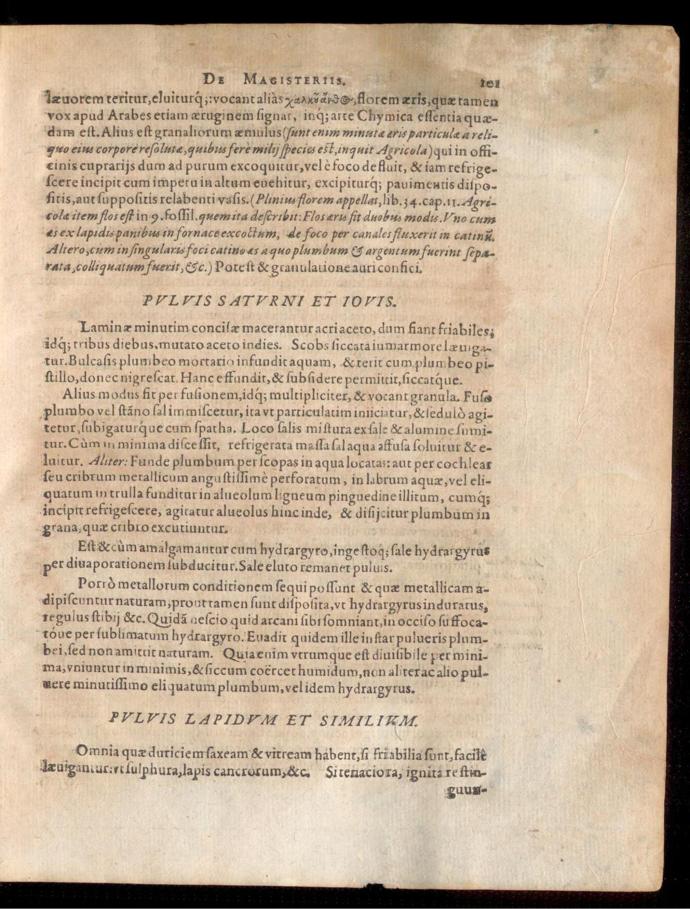 DE MAGISTERIIS. 101
læuorem teritur, eluiturq́;: vocant aliàs χαλκοῦ ἄνθος, florem æris, quæ tamen
vox apud Arabes etiam æruginem signat, inq́; arte Chymica essentia quæ-
dam est. Alius est granaliorum æmulus (sunt enim minutæ æris particulæ a reli-
quo eius corpore resolutæ, quibus fere milij species est, inquit Agricola) qui in offi-
cinis cuprarijs dum ad purum excoquitur, vel è foco defluit, & iam refrige-
scere incipit cum impetu in altum euehitur, excipiturq́; pauimentis dispo-
sitis, aut suppositis relabenti vasis. (Plinius florem appellat, lib. 34. cap. 11. Agri-
colæ item flos est in 9. fossil. quem ita describit: Flos æris fit duobus modis. Vno cum
æs ex lapidis panibus in fornace excoctum, de foco per canales fluxerit in catinũ.
Altero, cum in singularis foci catino æs a quo plumbum & argentum fuerint sepa-
rata, colliquatum fuerit, &c.) Potest & granulatione auri confici.
PVLVIS SATVRNI ET IOVIS.
Laminæ minutim concisæ macerantur acri aceto, dum fiant friabiles;
idq́; tribus diebus, mutato aceto indies. Scobs siccata in marmore læuiga-
tur. Bulcasis plumbeo mortario infundit aquam, & terit cum plumbeo pi-
stillo, donec nigrescat. Hanc effundit, & subsidere permittit, siccatque.
Alius modus fit per fusionem, idq́; multipliciter, & vocant granula. Fuso
plumbo vel stãno sal immiscetur, ita vt particulatim iniiciatur, & sedulò agi-
tetur, subigaturque cum spatha. Loco salis mistura ex sale & alumine sumi-
tur. Cùm in minima discessit, refrigerata massa sal aqua affusa soluitur & e-
luitur. Aliter: Funde plumbum per scopas in aqua locatas: aut per cochlear
seu cribrum metallicum angustissimè perforatum, in labrum aquæ, vel eli-
quatum in trulla funditur in alueolum ligneum pinguedine illitum, cumq́;
incipit refrigescere, agitatur alueolus hinc inde, & disijcitur plumbum in
grana, quæ cribro excutiuntur.
Est & cùm amalgamantur cum hydrargyro, ingestoq́; sale hydrargyrus
per diuaporationem subducitur. Sale eluto remanet puluis.
Porrò metallorum conditionem sequi possunt & quæ metallicam a-
dipiscuntur naturam, prout tamen sunt disposita, vt hydrargyrus induratus,
regulus stibij &c. Quidã nescio quid arcani sibi somniant, in occiso suffoca-
tóue per sublimatum hydrargyro. Euadit quidem ille instar pulueris plum-
bei, sed non amittit naturam. Quia enim vtrumque est diuisibile per mini-
ma, vniuntur in minimis, & siccum coërcet humidum, non aliter ac alio pul-
uere minutissimo eliquatum plumbum, vel idem hydrargyrus.
PVLVIS LAPIDVM ET SIMILIVM.
Omnia quæ duriciem saxeam & vitream habent, si friabilia sunt, facilè
læuigantur: vt sulphura, lapis cancrorum, &c. Si tenaciora, ignita restin-
guun-